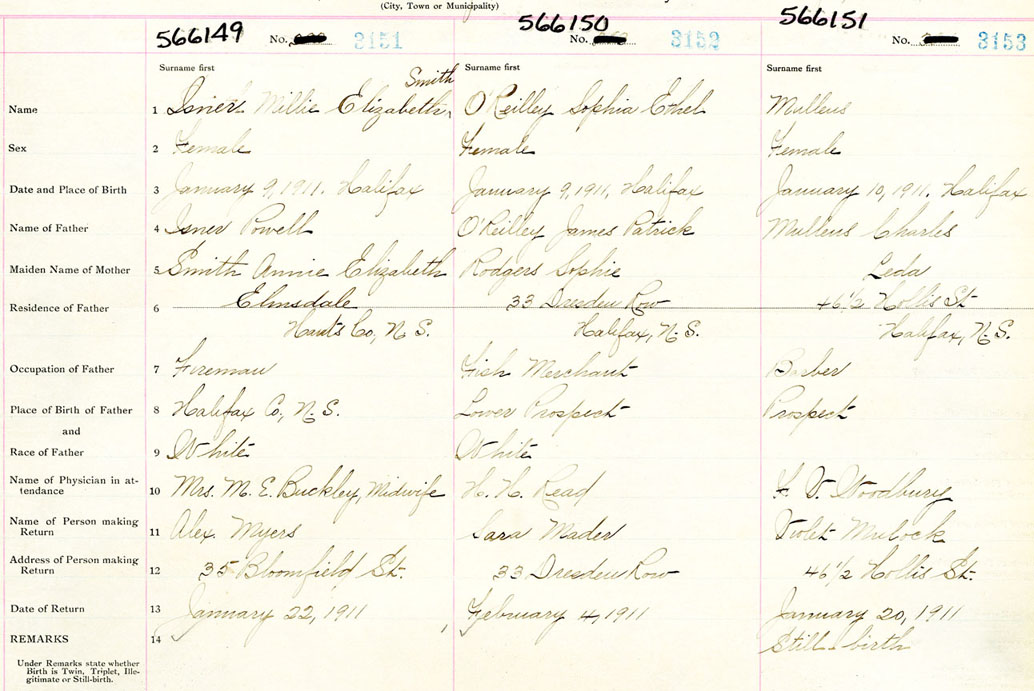 (City, Town or Municipality)
566149 No. 3151 566150 No. 3152 566151 No. 3153
Surname first Surname first Surname first
Smith
Name 1 Isner Millie Elizabeth, O'Reilley Sophia Ethel Mulleus
Sex 2 Female Female Female
Date and Place of Birth 3 January 9, 1911. Halifax January 9, 1911, Halifax January 10, 1911, Halifax
Name of Father 4 Isner Powell O'Reilley James Patrick Mulleus Charles
Maiden Name of Mother 5 Smith Annie Elizabeth Rodgers Sophie Leda
Residence of Father 6 Elmsdale 33 Dresden Row 46 1/2 Hollis St
Hants Co, N. S. Halifax, N. S. Halifax, N. S.
Occupation of Father 7 Fireman Fish Merchant Barber
Place of Birth of Father 8 Halifax Co, N. S. Lower Prospect Prospect
and
Race of Father 9 White White
Name of Physician in at-
tendance 10 Mrs. M. E. Buckley, Midwife H. H. Read F. V. Woodbury
Name of Person making
Return 11 Alex. Myers Sara Mader Violet Mulock
Address of Person making
Return 12 35 Bloomfield St. 33 Dresden Row 46 1/2 Hollis St.
Date of Return 13 January 22, 1911 February 4, 1911 January 20, 1911
REMARKS 14 Still-birth
Under Remarks state whether
Birth is Twin, Triplet, Ille-
gitimate or Still-birth.